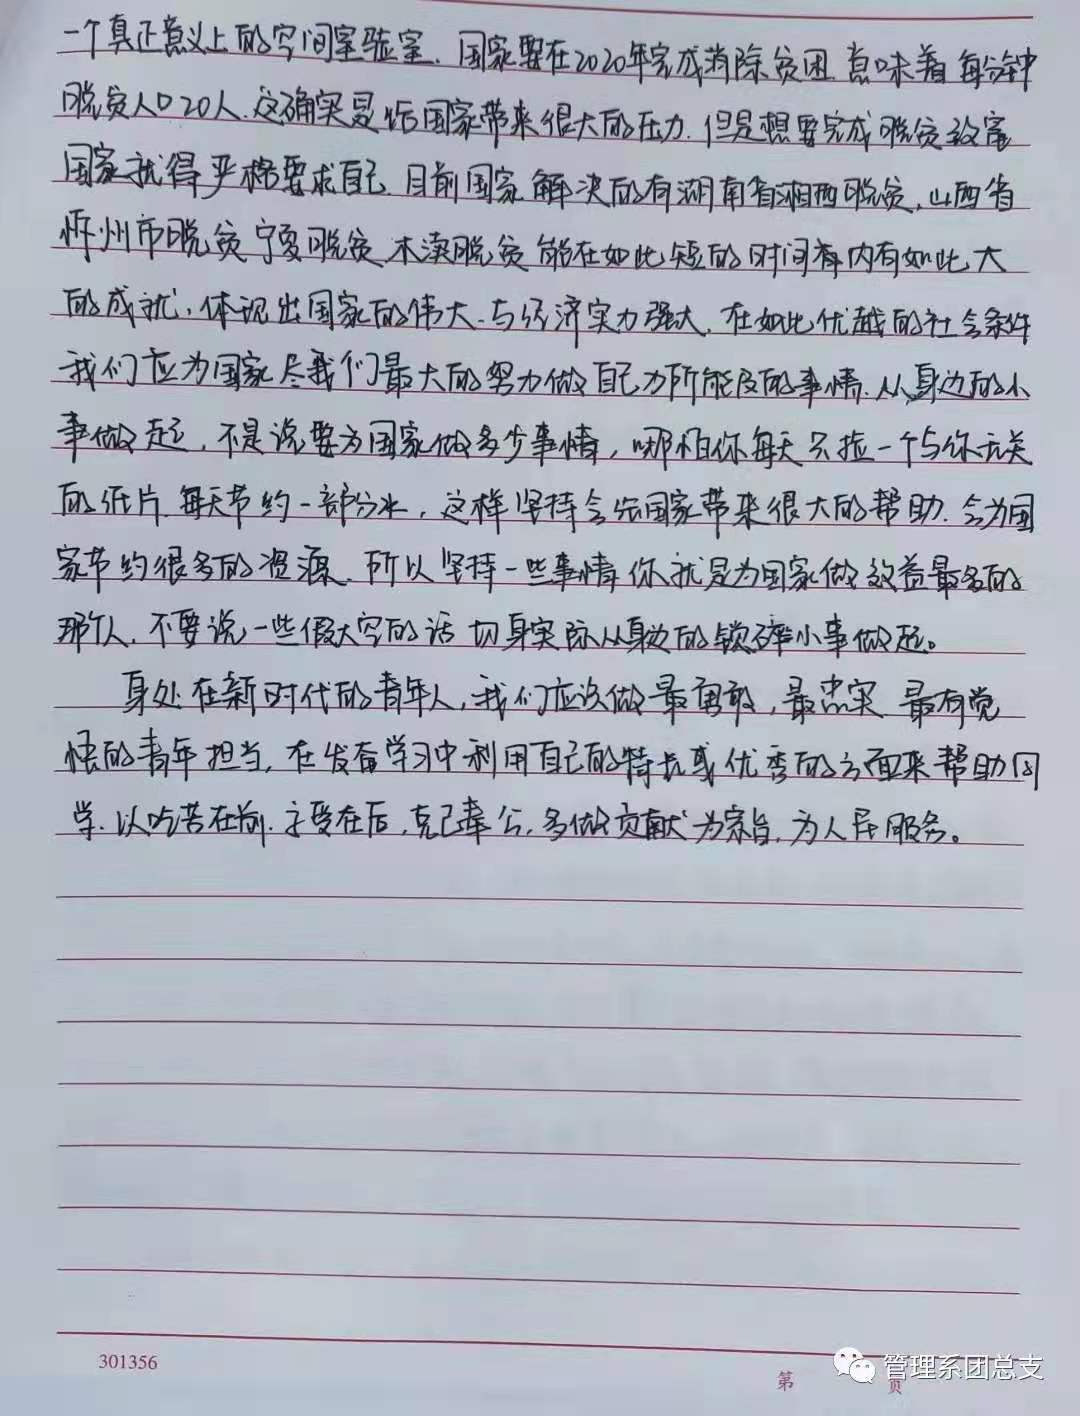 一个真正意义上的空间实验室.国家要在2020年完成消除贫困 意味着每分钟
脱贫人口20人.这确实是给国家带来很大的压力.但是想要完成脱贫致富
国家就得严格要求自己.目前国家解决的有湖南省湘西脱贫,山西省
忻州市脱贫 宁夏脱贫 脱贫 能在如此短的时间内有如此大
的成就,体现出国家的伟大.与经济实力强大.在如此优越的社会条件
我们应为国家尽我们最大的努力做自己力所能及的事情.从身边的小
事做起,不是说要为国家做多少事情,哪怕你每天只捡一个与你无关
的纸片.每天节约一部分水,这样坚持会给国家带来很大的帮助.会为国
家节约很多的资源.所以坚持一些事情你就是为国家做效益最多的
那个人.不要说一些假大空的话 切身实际从身边的锁碎小事做起。
身处在新时代的青年人,我们应该做最勇敢,最忠实 最有觉
悟的青年担当,在发奋学习中利用自己的特长或优秀的方面来帮助同
学.以吃苦在前.享受在后,克己奉公,多做贡献为宗旨,为人民服务。
301356
第 页
管理系团总支